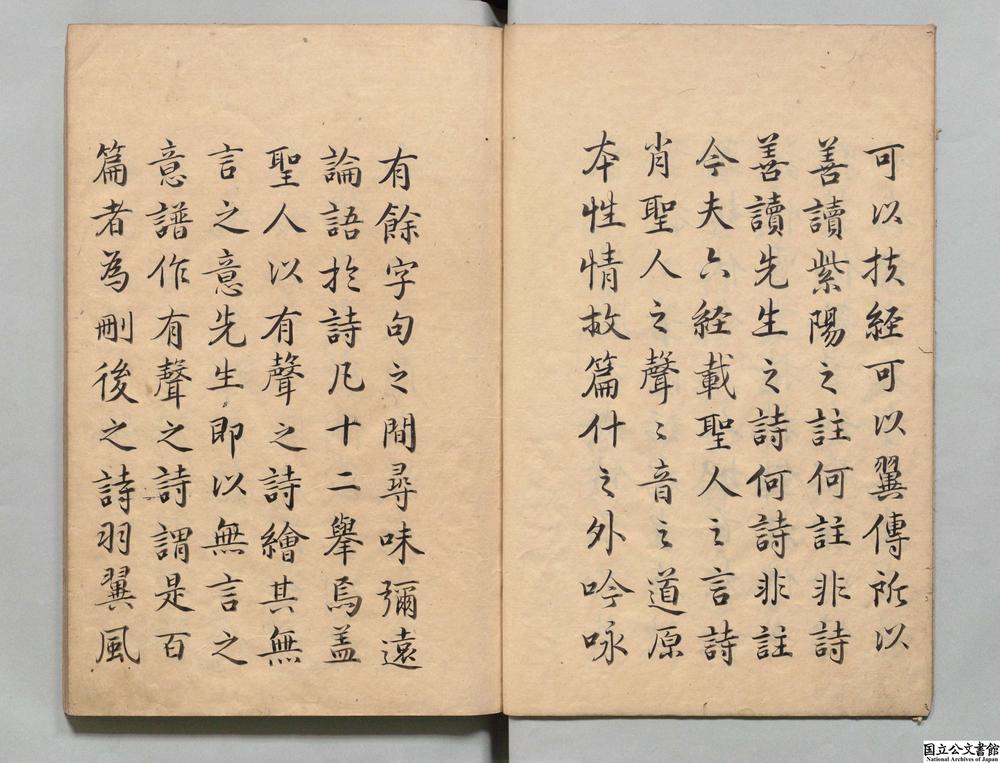 可以扶經可以翼傳所以
善讀紫陽之註何註非詩
善讀先生之詩何詩非註
今夫六經載聖人之言詩
肖聖人之聲〻音之道原
本性情故篇什之外吟咏
有餘字句之間尋味彌遠
論語扵詩凡十二舉焉盖
聖人以有聲之詩繪其無
言之意先生即以無言之
意譜作有聲之詩謂是百
篇者為刪後之詩羽翼風
国立公文書館
National Archives of Japan